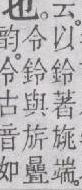 云以鈴著旐端
也
韵令鈴與旂疊
今古音如